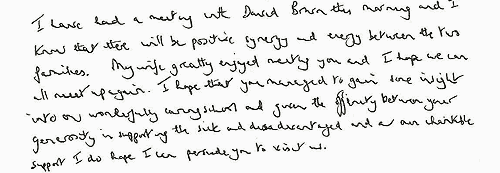 I have had a meeting with David Brown this morning and I
know that there will be positive synergy and energy between the two
families. My wife greatly enjoyed meeting you and I hope we can
all meet up again. I hope that you managed to gain some insight
into our wonderfully caring school and given the affinity between your
generosity in supporting the sick and disadvantaged and our own charitable
support I do hope I can persuade you to visit us.